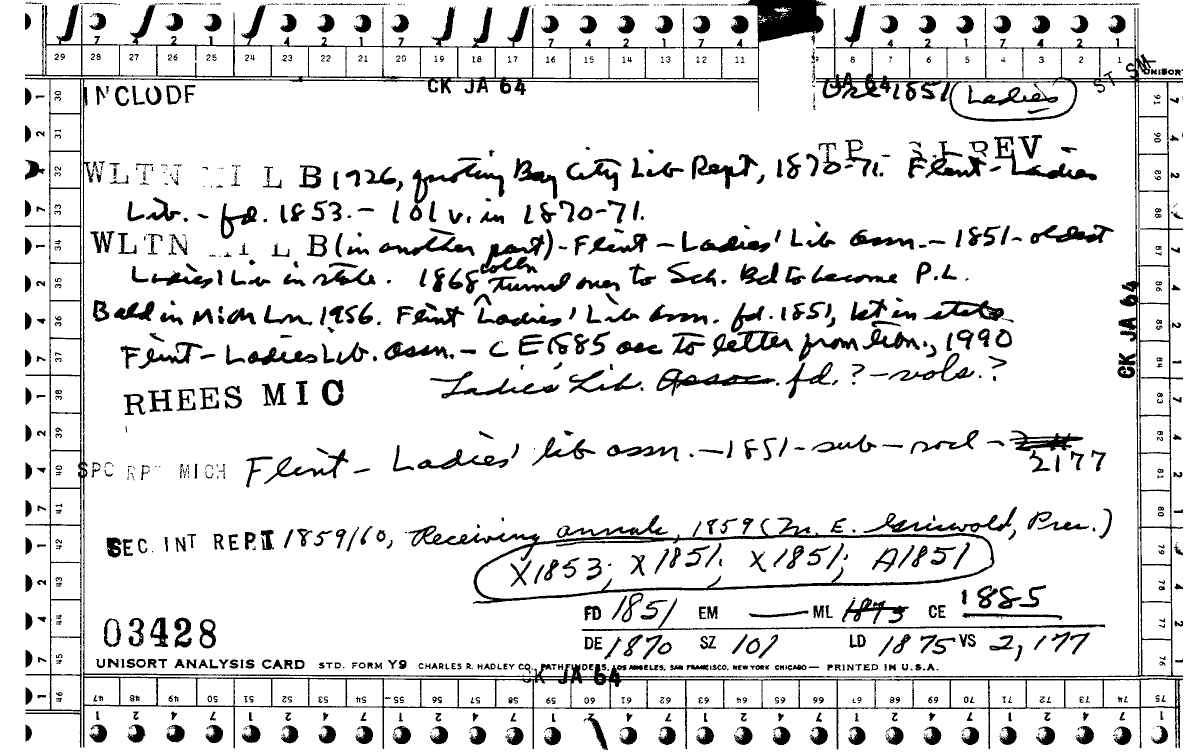 7 4 2 1 7 4 2 1 7 4 2 1 7 4 2 1 7 4 2 1
29 28 27 26 25 24 23 22 21 20 19 18 17 16 15 14 13 12 11 8 7 6 5 4 3 2 1
UNISORT
CK JA 64
ST SM
INCLODF
JA 64
1851 Ladies
TP - SJ REV
WLTN MI L B 1926, quoting Bay City Lib Rept, 1870-71. Flint - Ladies
Lib. - fd. 1853. - 101 v. in 1870-71.
WLTN MI L B (in another part) - Flint - Ladies' Lib assn. - 1851 - oldest
Ladies' Lib in state. 1868 colln turned over to Sch. Bd to become P.L.
Bald in Mich Lnn. 1956. Flint Ladies' Lib Assn. fd. 1851, 1st in state
Flint - Ladies Lib. assn. - C E 1885 acc to letter from libn., 1990
RHEES MIC Ladies Lib. Assoc. fd. ? - vols. ?
SPC RPT MICH Flint - Ladies' lib assn. - 1851 - sub - socl -
2177
SEC. INT REPT 1859/60, Receiving annals, 1859 (M. E. Griswold, Pres.)
X1853; X1851; X1851; A1851
FD 1851 EM — ML 1875 CE 1885
03428
DE 1870 SZ 101 LD 1875 VS 2,177
UNISORT ANALYSIS CARD STD. FORM Y9 CHARLES R. HADLEY CO., PATHFINDERS, LOS ANGELES, SAN FRANCISCO, NEW YORK CHICAGO — PRINTED IN U.S.A.
CK JA 64
CK JA 64
47 48 49 50 51 52 53 54 55 56 57 58 59 60 61 62 63 64 65 66 67 68 69 70 71 72 73 74 75